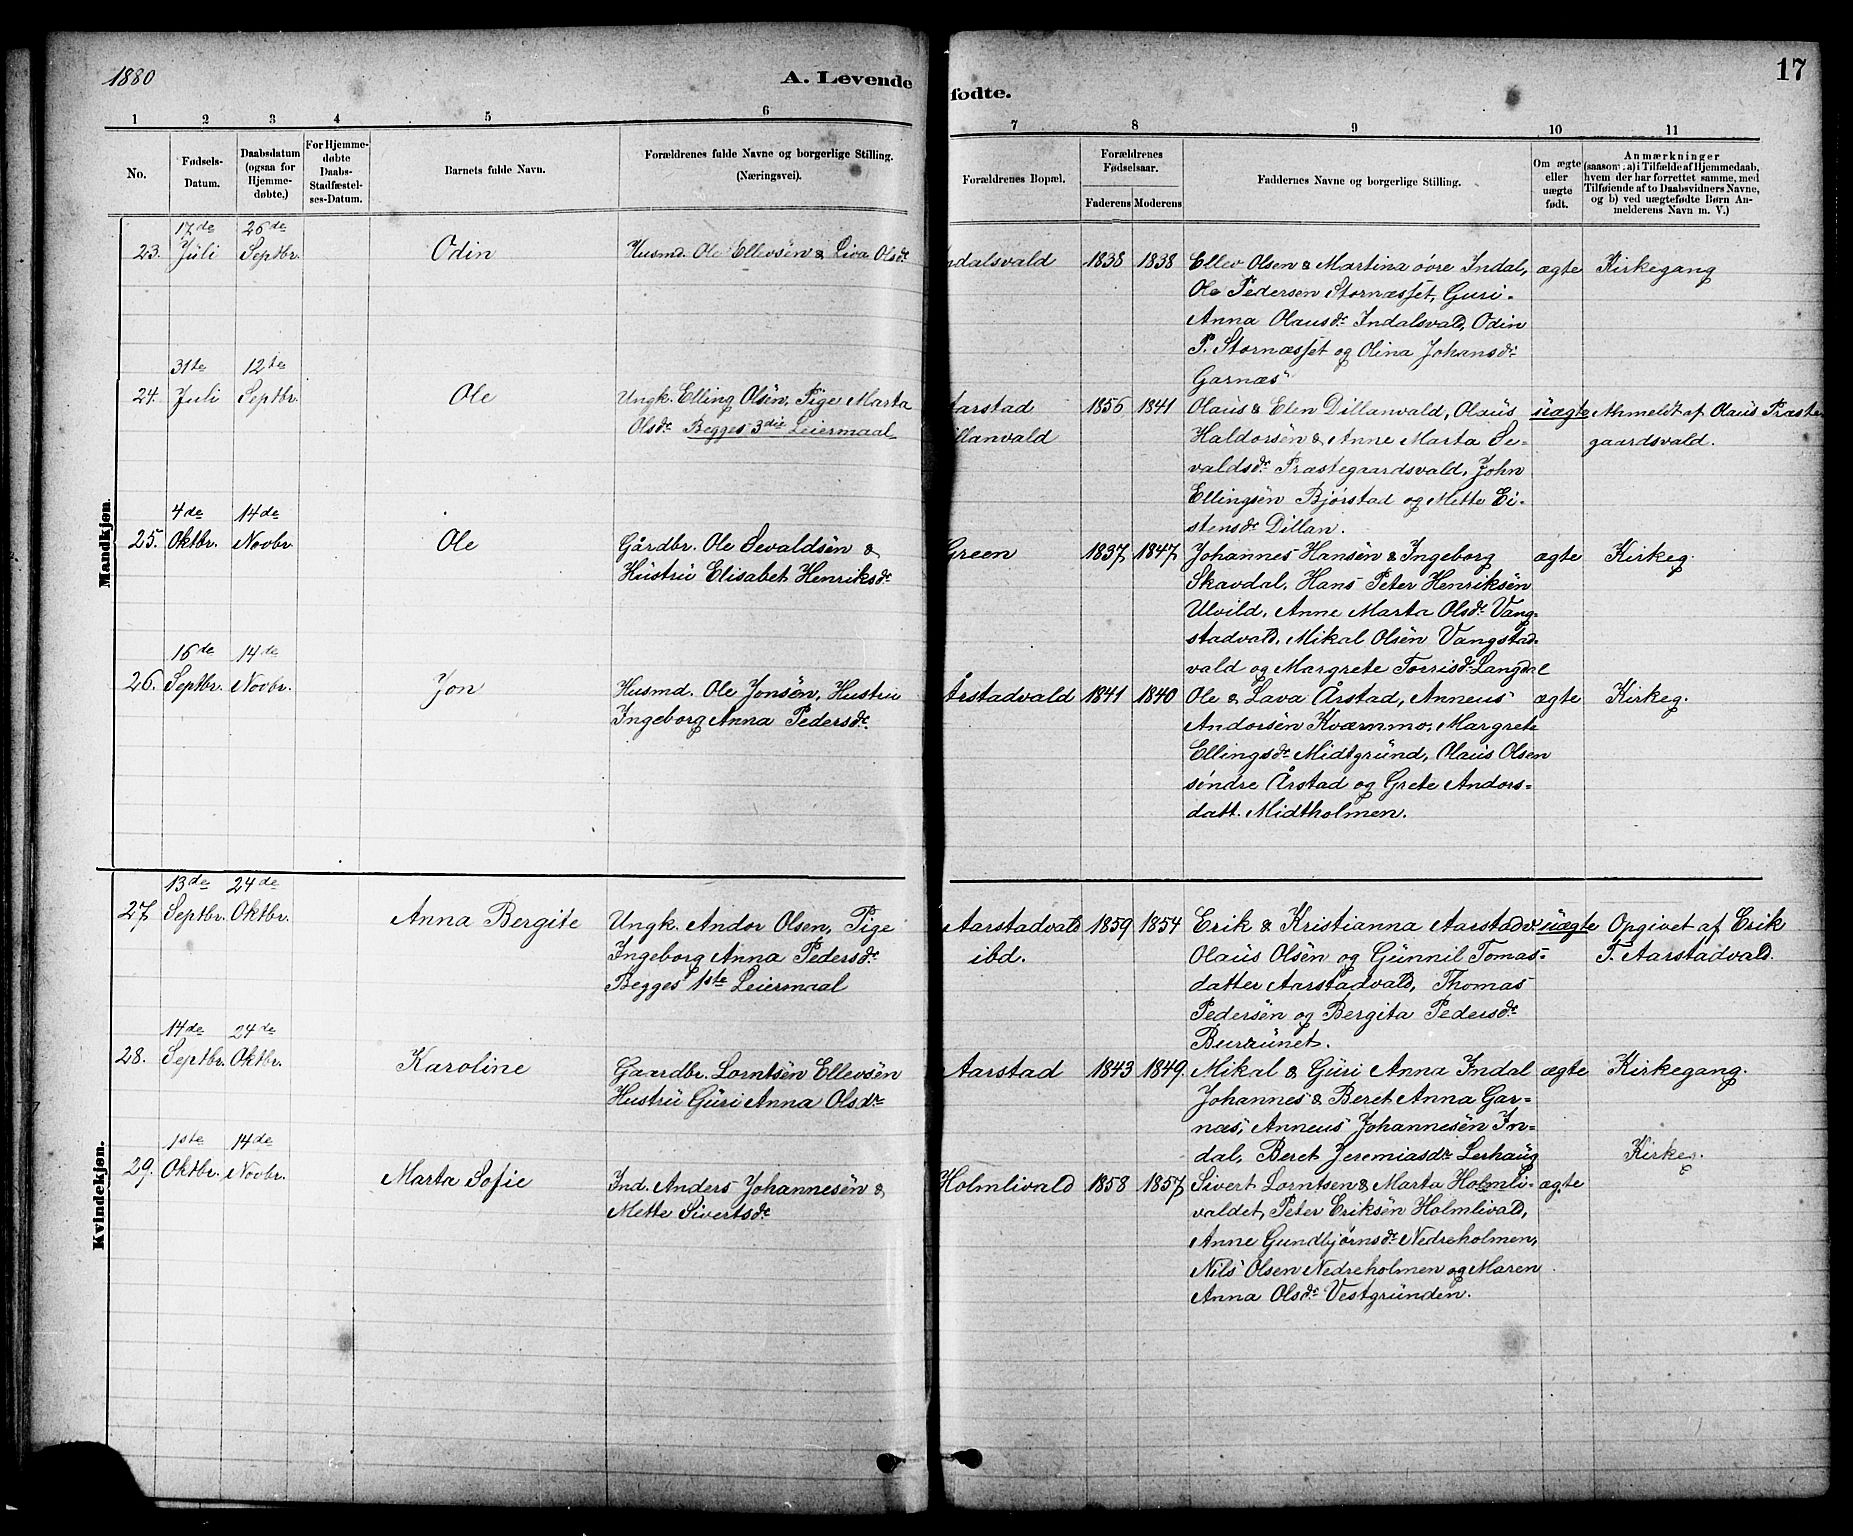 1880
A. Levende
fødte.
17
1 2 3 4 5 6
7 8 9 10 11
No.
Fødsels-
Datum.
Daabsdatum
(ogsaa for
Hjemme-
døbte.)
For Hjemme-
døbte
Daabs-
Stadfæstel-
ses-Datum.
Barnets fulde Navn.
Forældrenes fulde Navne og borgerlige Stilling.
(Næringsvei).
Forældrenes Bopæl.
Forældrenes
Fødselsaar.
Faderens Moderens
Faddernes Navne og borgerlige Stilling.
Om ægte
eller
uægte
født.
Anmærkninger
(saasom: a) i Tilfælde af Hjemmedaab,
hvem der har forrettet samme, med
Tilføiende af to Daabsvidners Navne,
og b) ved uægtefødte Børn An-
melderens Navn m. V.)
Mandkjøn.
17de 26de
23. Juli Septbr. Odin Husmd. Ole Ellevsen & Liva Olsdr.
ndalsvald 1838 1838 Ellev Olsen & Martina övre Indal, ægte Kirkegang
Ole Pedersen Stornæsset, Guri-
Anna Olausdr. Indalsvald, Odin
P. Stornæsset og Olina Johansdr.
Garnæs
31te 12te
24. Juli Septbr. Ole Ungk. Elling Olsen, Pige Marta
Olsdr. Begges 3die Leiermaal
arstad 1856 1841 Olaus & Elen Dillanvald, Olaus uægte Anmeldt af Olaus Præste-
illanvald Haldorsen & Anne Marta Se- gaardsvald.
valdsdr. Præstegaardsvald, John
Ellingsen Bjørstad og Mette Ei-
stensdr. Dillan.
4de 14de
25. Oktbr. Novbr. Ole Gårdbr. Ole Sevaldsen &
Hustru Elisabet Henriksdr.
Green 1837 1847 Johannes Hansen & Ingeborg ægte Kirkeg.
Skavdal, Hans Peter Henriksen
Ulvild, Anne Marta Olsdr. Vang-
stadvald, Mikal Olsen Vangstad-
vald og Margrete Torrisdr. Langdal
16de 14de
26. Septbr. Novbr. Jon Husmd. Ole Jonsen, Hustru
Ingeborg Anna Pedersdr.
Årstadvald 1841 1840 Ole & Lava Årstad, Anneus ægte Kirkeg.
Andorsen Kværnmo, Margrete
Ellingsdr. Midtgrund, Olaus Olsen
söndre Årstad og Grete Andors-
datt. Midtholmen.
Kvindekjøn.
13de 24de
27 Septbr. Oktbr. Anna Bergite Ungk. Andor Olsen, Pige
Ingeborg Anna Pedersdr.
Begges 1ste Leiermaal
Aarstadvald 1859 1854 Erik & Kristianna Aarstadv. uægte Opgivet af Erik
ibd. Olaus Olsen og Gunnil Tomas- T. Aarstadvald.
datter Aarstadvald, Thomas
Pedersen og Bergita Pedersdr.
Buraunet.
14de 24de
28. Septbr. Oktbr. Karoline Gaardbr. Lorntsen Ellevsen
Hustru Guri Anna Olsdr
Aarstad 1843 1849 Mikal & Guri Anna Indal ægte Kirkegang.
Johannes & Beret Anna Gar-
næs, Anneus Johannesen In-
dal, Beret Jeremiasdr Lerhaug
1ste 14de
29. Oktbr. Novbr. Marta Sofie Ind. Anders Johannesen &
Mette Sivertsdr.
Holmlivald 1858 1857 Sivert Lorntsen & Marta Holmli- ægte Kirkeg.
valdet, Peter Eriksen Holmlivald,
Anne Gundbjørnsdr. Nedreholmen,
Nils Olsen Nedreholmen og Maren
Anna Olsdr. Vestgrunden.